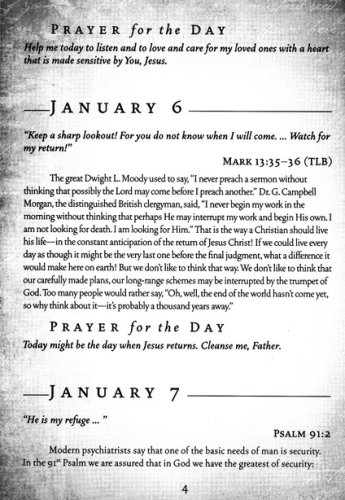 PRAYER for the DAY
Help me today to listen and to love and care for my loved ones with a heart
that is made sensitive by You, Jesus.
JANUARY 6
"Keep a sharp lookout! For you do not know when I will come. ... Watch for
my return!"
MARK 13:35–36 (TLB)
The great Dwight L. Moody used to say, "I never preach a sermon without
thinking that possibly the Lord may come before I preach another." Dr. G. Campbell
Morgan, the distinguished British clergyman, said, "I never begin my work in the
morning without thinking that perhaps He may interrupt my work and begin His own. I
am not looking for death. I am looking for Him." That is the way a Christian should live
his life—in the constant anticipation of the return of Jesus Christ! If we could live every
day as though it might be the very last one before the final judgment, what a difference it
would make here on earth! But we don't like to think that way. We don't like to think that
our carefully made plans, our long-range schemes may be interrupted by the trumpet of
God. Too many people would rather say, "Oh, well, the end of the world hasn't come yet,
so why think about it—it's probably a thousand years away."
PRAYER for the DAY
Today might be the day when Jesus returns. Cleanse me, Father.
JANUARY 7
"He is my refuge ... "
PSALM 91:2
Modern psychiatrists say that one of the basic needs of man is security.
In the 91st Psalm we are assured that in God we have the greatest of security:
4